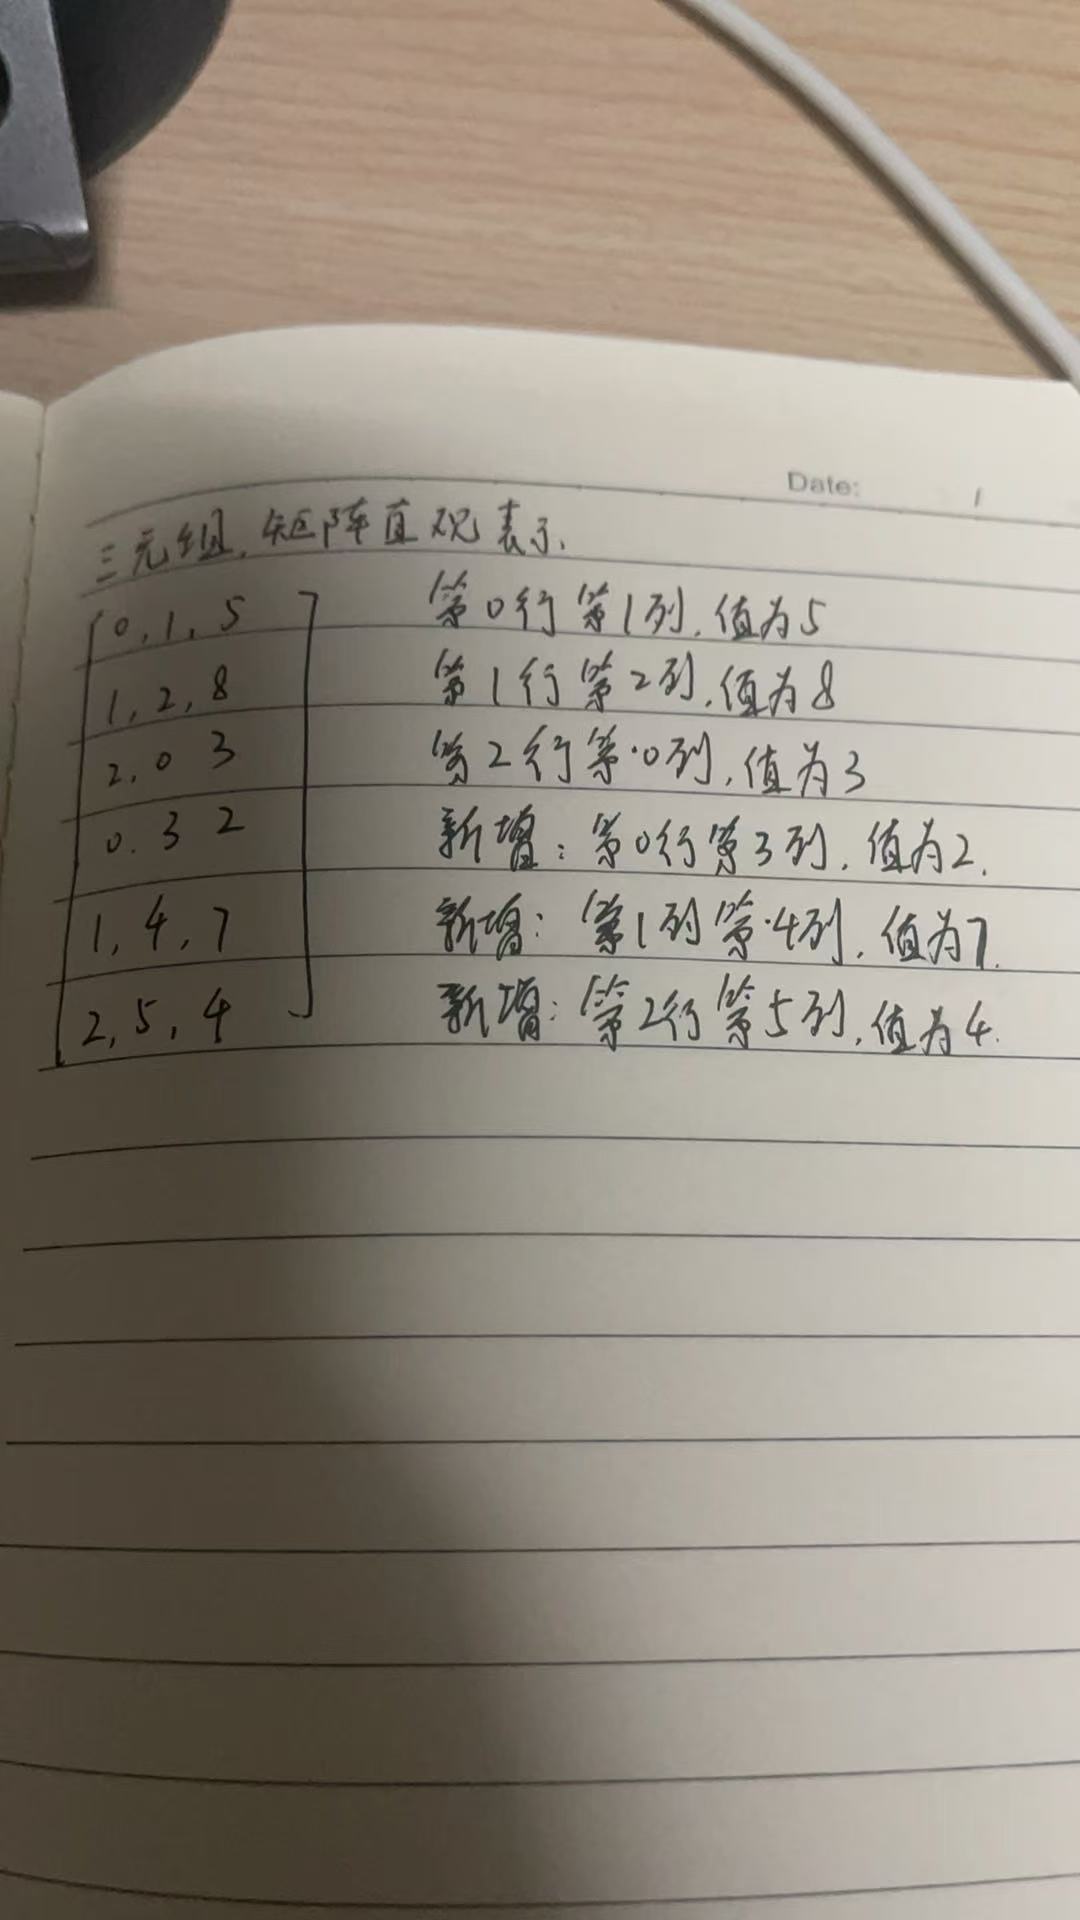 Date: /
三元组,矩阵直观表示.
0,1,5 第0行第1列,值为5
1,2,8 第1行第2列,值为8
2,0 3 第2行第0列,值为3
0.3 2 新增:第0行第3列,值为2.
1,4,7 新增:第1列第4列,值为7.
2,5,4 新增:第2行第5列,值为4.